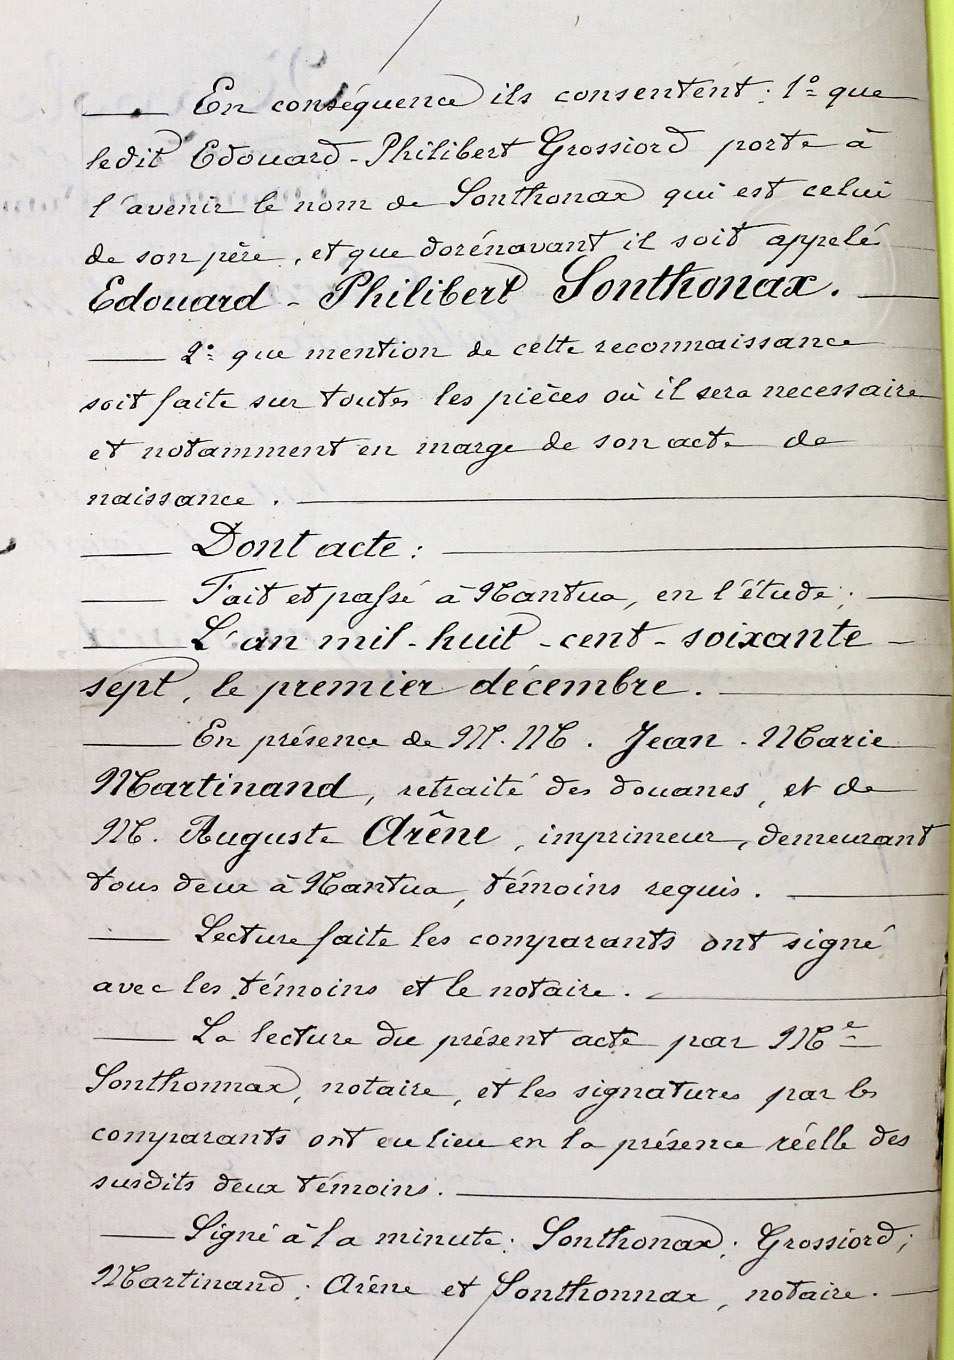 En conséquence ils consentent : 1º que
ledit Edouard-Philibert Grossiord porte à
l'avenir le nom de Sonthonax qui est celui
de son père, et que dorénavant il soit appelé
Edouard-Philibert Sonthonax.
2º que mention de cette reconnaissance
soit faite sur toutes les pièces où il sera necessaire
et notamment en marge de son acte de
naissance.
Dont acte :
Fait et passé à Nantua, en l'étude ;
L'an mil-huit-cent-soixante-
sept, le premier décembre.
En présence de M.M. Jean-Marie
Martinand, retraité des douanes, et de
M. Auguste Arène, imprimeur, demeurant
tous deux à Nantua, témoins requis.
Lecture faite les comparants ont signé
avec les témoins et le notaire.
La lecture du présent acte par Me
Sonthonnax, notaire, et les signatures par les
comparants ont eu lieu en la présence réelle des
susdits deux témoins.
Signé à la minute : Sonthonax ; Grossiord ;
Martinand ; Arène et Sonthonnax, notaire.